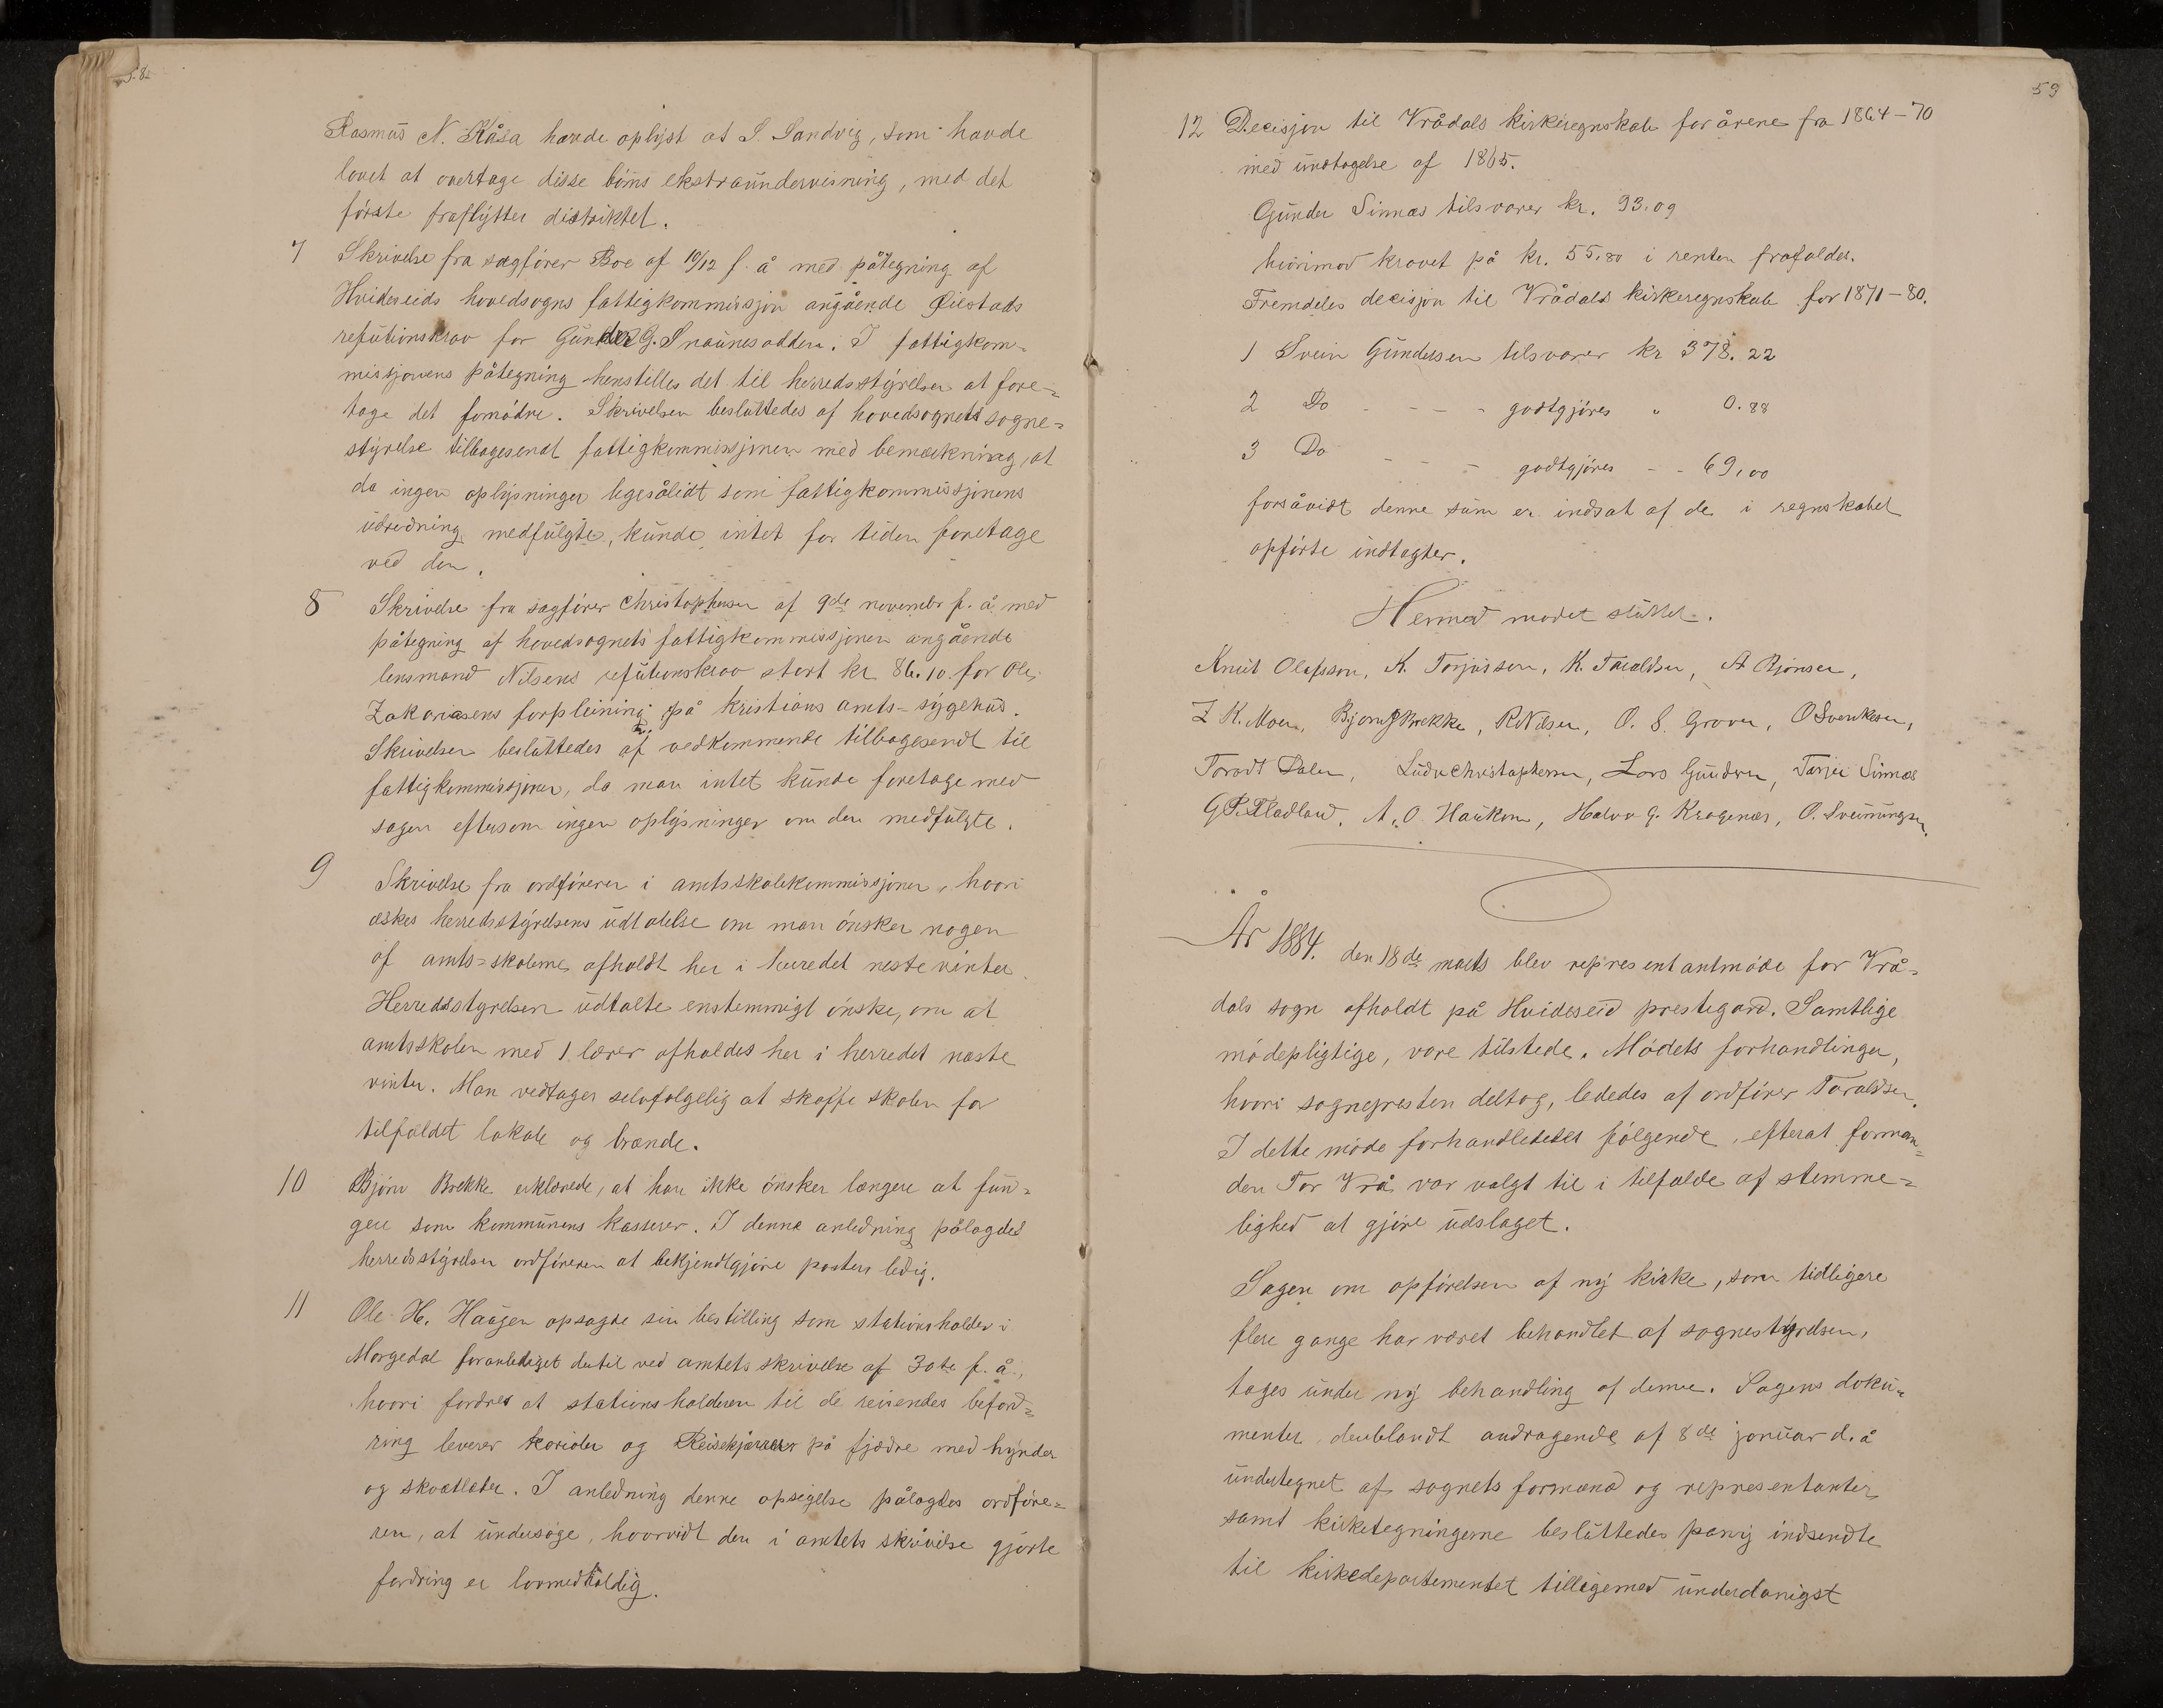 58
Rasmus N. Kåsa havde oplyst at S. Sandvig, som havde
lovet at overtage disse börns ekstraundervisning, med det
förste fraflytter distriktet.
7 Skrivelse fra sagförer Boe af 19/12 f. å med påtegning af
Hvideseids hovedsogns fattigkommissjon angående Qilstads
refutionskrav for Gunder G. Snaunesodden. I fattigkom-
missjonens påtegning henstilles det til herredsstyrelsen at fore-
tage det fornödne. Skrivelsen besluttedes af hovedsognets sogne-
styrelse tilbagesendt fattigkommissjonen med bemærkning, at
da ingen oplysninger ligesålidt som fattigkommissjonens
udredning medfulgte, kunde intet for tiden foretage
ved den.
8 Skrivelse fra sagförer Christophersen af 9de novembr f. å med
påtegning af hovedsognets fattigkommissjonen angående
lensmand Nilsens refutionskrav stort kr. 86.10 for Ole
Zakariasens forpleining på Kristians amts-sygehus.
Skrivelsen besluttedes af vedkommende tilbagesendt til
fattigkommissjonen, da man intet kunde foretage med
sagen eftersom ingen oplysninger om den medfulgte.
9 Skrivelse fra ordföreren i amtsskolekommissjonen, hvori
æskes herredsstyrelsens udtalelse om man önsker nogen
af amts-skolerne afholdt her i herredet neste vinter.
Herredsstyrelsen udtalte enstemmigt önske, om at
amtsskolen med 1 lærer afholdes her i herredet næste
vinter. Man vedtager selvfølgelig at skaffe skolen for
tilfældet lokale og brænde.
10 Björn Brekke erklærede, at han ikke önsker længere at fun-
gere som kommunens kasserer. I denne anledning pålagdes
herredsstyrelsen ordföreren at bekjendtgjöre posten ledig.
11 Ole H. Haugen opsagde sin bestilling som stationsholder i
Morgedal foranlediget dertil ved amtets skrivelse af 30te f. å.,
hvori fordres at stationsholderen til de reisendes beford-
ring leverer karioler og Reisekjærrer på fjædre med hynder
og skvætlæder. I anledning denne opsigelse pålagdes ordföre-
ren, at undersöge, hvorvidt den i amtets skrivelse gjorte
fordring er lovmedholdig.
59
12 Decisjon til Vrådals kirkeregnskab for årene fra 1864-70
med undtagelse af 1865.
Gunder Sinnæs tilsvarer kr. 93.09
hvorimod kravet på kr. 55.80 i renter frafaldes.
Fremdeles decisjon til Vrådals kirkeregnskab for 1871-80.
1 Svein Gundersen tilsvarer kr 378.22
2 Do - - - - godtgjöres " 0.88
3 Do - - - godtgjöres - - 69,00
forsåvidt denne sum er indsat af de i regnskabet
opförte indtægter.
Hermed mødet sluttet.
Knut Olafsson, K. Torjussen, K. Taraldsen, A Björnsen,
Z K. Moen, Bjorn J Brekke, R Nilsen, O. S. Groven, O Svenkesen,
Taradt Dalen, Ludv Christophersen, Lars Gundersen, Tarjei Sinnæs
G P. Fladland, A. O Haukom, Halvor G. Kragenæs, O. Sveinungsen.
År 1884. den 18de marts blev representantmöde for Vrå-
dals sogn afholdt på Hvideseid prestegard. Samtlige
mödepligtige, vare tilstede. Mödets forhandlinger,
hvori sognepresten deltog, lededes af ordförer Taraldsen.
I dette möde forhandledes fölgende, efterat forman-
den Tor Vrå var valgt til i tilfælde af stemme-
lighed at gjöre udslaget.
Sagen om opförelsen af ny kirke, som tidligere
flere gange har været behandlet af sognestyrelsen,
tages under ny behandling af denne. Sagens doku-
menter deriblandt andragende af 8de januar d. å
undertegnet af sognets formænd og representanter
samt kirketegningerne besluttedes påny indsendte
til kirkedepartementet tilligemed underdanigst